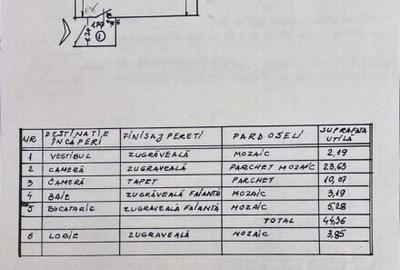 1
NR DESTINAȚIE FINISAJ PEREȚI PARDOSELI SUPRAFAȚA
ÎNCĂPERI UTILĂ
1 VESTIBUL ZUGRĂVEALĂ MOZAIC 2,19
2 CAMERĂ ZUGRĂVEALĂ PARCHET MOZAIC 23,63
3 CAMERĂ TAPET PARCHET 10,07
4 BAIE ZUGRĂVEALĂ FAIANȚĂ MOZAIC 3,19
5 BUCATARIE ZUGRAVEALĂ FAIANȚĂ MOZAIC 5,28
TOTAL 44,36
6 LOGIE ZUGRAVEALĂ MOZAIC 3,85